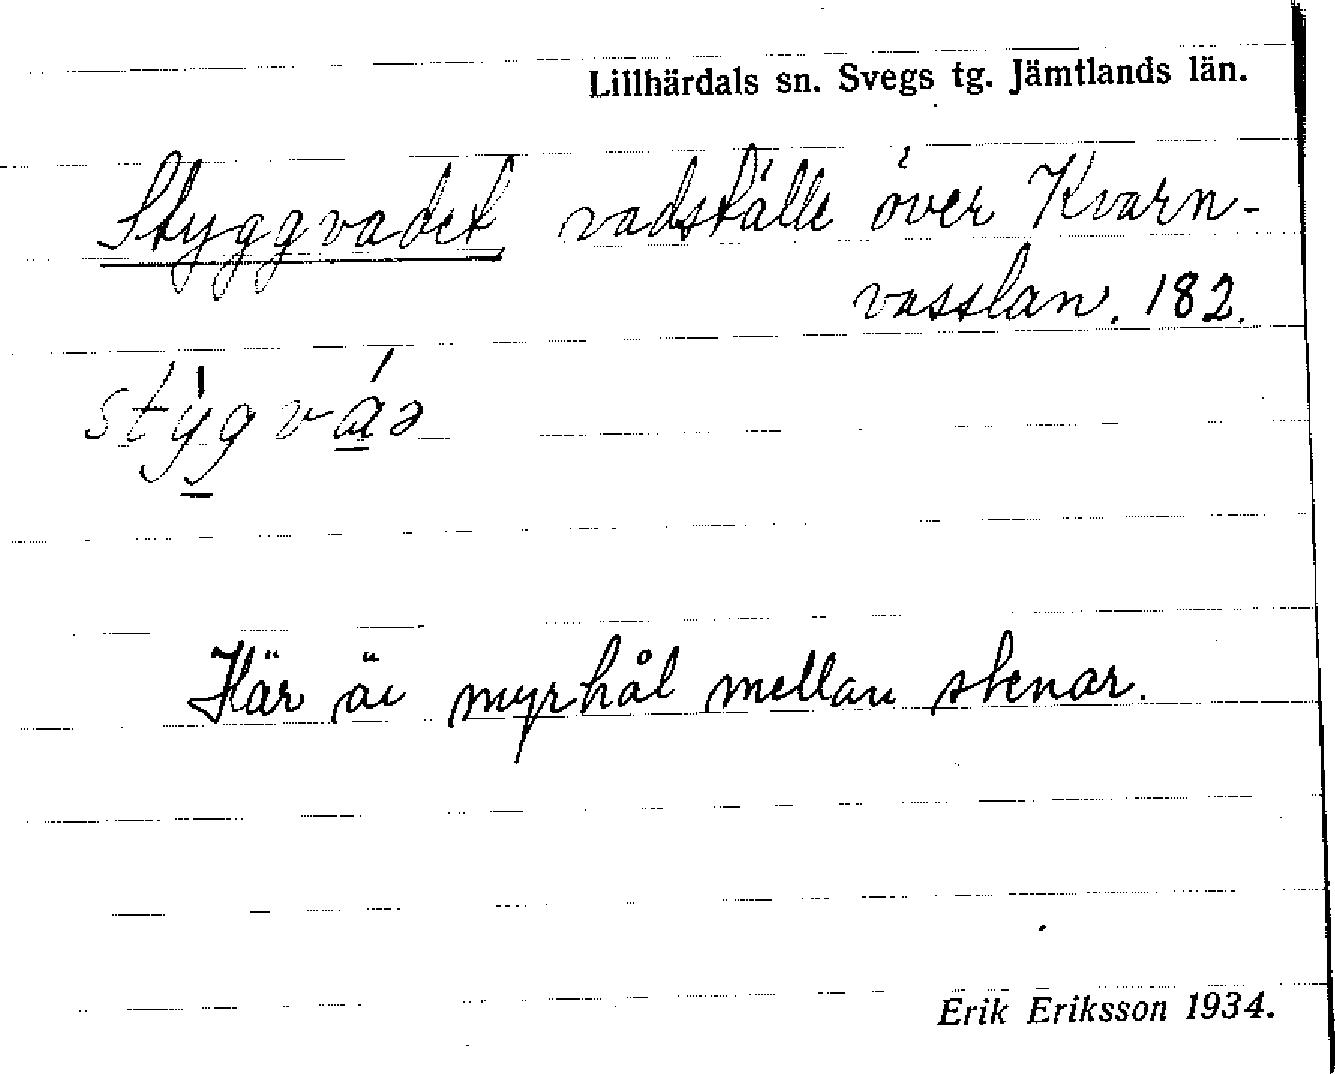 Lillhärdals sn. Svegs tg. Jämtlands län.
Styggvadet vadställe över Kvarn-
vasslan. 182.
stýgváə
Här är myrhål mellan stenar.
Erik Eriksson 1934.